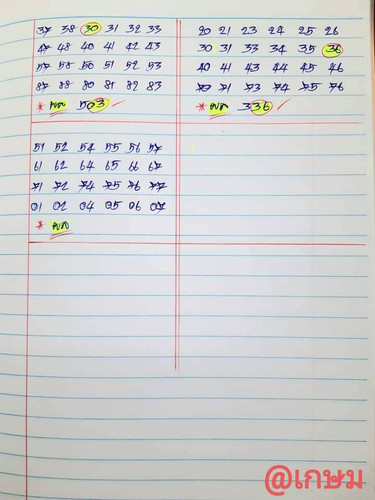 37 38 30 31 32 33
47 48 40 41 42 43
57 58 50 51 52 53
87 88 80 81 82 83
* ผล 503 ✓
20 21 23 24 25 26
30 31 33 34 35 36
40 41 43 44 45 46
70 71 73 74 75 76
* ผล 336 ✓
51 52 54 55 56 57
61 62 64 65 66 67
71 72 74 75 76 77
01 02 04 05 06 07
* ผล
@เกษม